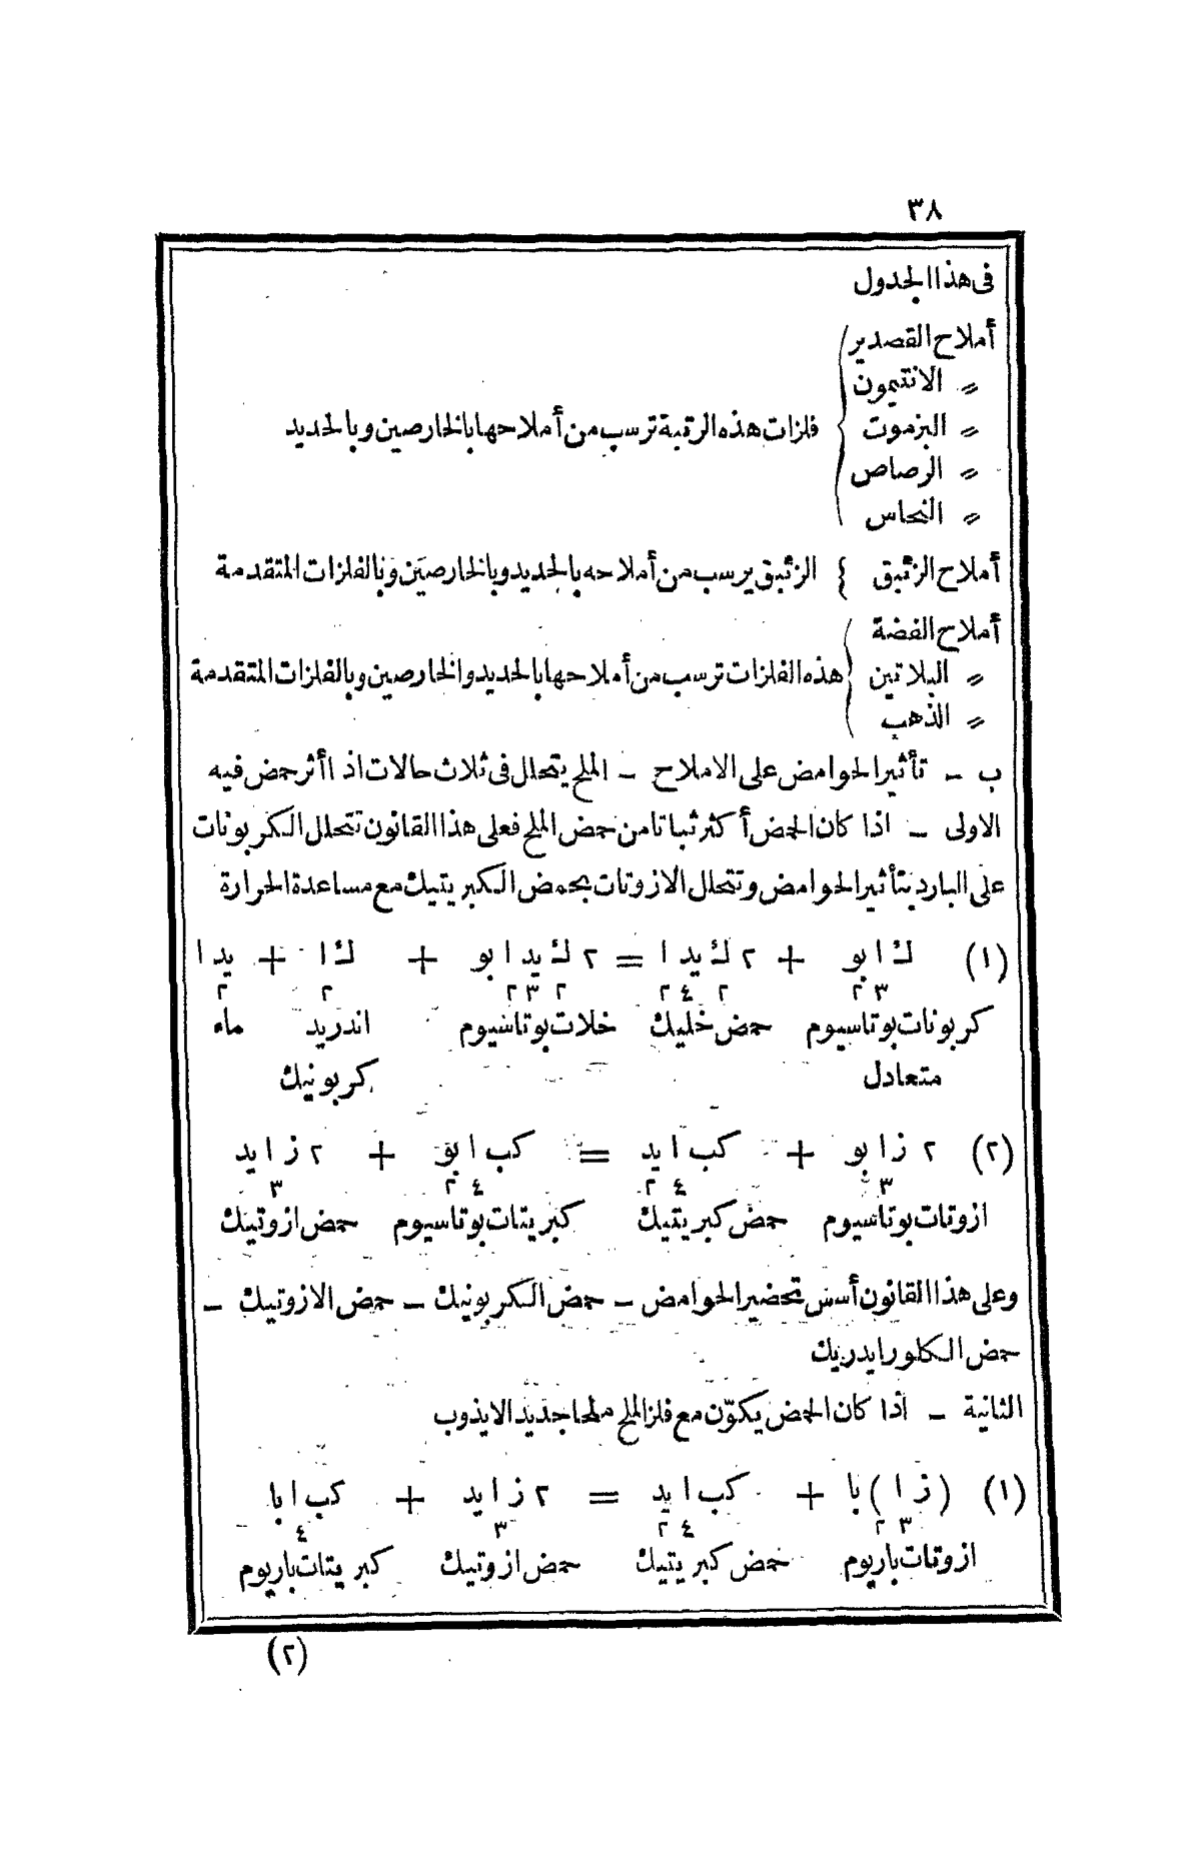 ٣٨
فى هذا الجدول
أملاح القصدير
〃 الانتيمون
〃 البزموت } فلزات هذه الرتبة ترسب من أملاحها بالخارصين وبالحديد
〃 الرصاص
〃 النحاس
أملاح الزئبق } الزئبق يرسب من أملاحه بالحديد وبالخارصين وبالفلزات المتقدمة
أملاح الفضة
〃 البلاتين } هذه الفلزات ترسب من أملاحها بالحديد والخارصين وبالفلزات المتقدمة
〃 الذهب
ب – تأثير الحوامض على الاملاح – الملح يتحلل فى ثلاث حالات اذا أثر حمض فيه
الاولى – اذا كان الحمض أكثر ثباتا من حمض الملح فعلى هذا القانون تتحلل الكربونات
على البارد بتأثير الحوامض وتتحلل الازوتات بحمض الكبريتيك مع مساعدة الحرارة
(١) ك ا بو + ٢ ك يد ا = ٢ ك يد ا بو + ك ا + يد ا
٣ ٢ ٢ ٤ ٢ ٢ ٣ ٢ ٢ ٢
كربونات بوتاسيوم حمض خليك خلات بوتاسيوم اندريد ماء
متعادل كربونيك
(٢) ٢ ز ا بو + كب ا يد = كب ا بو + ٢ ز ا يد
٣ ٤ ٢ ٤ ٢ ٣
ازوتات بوتاسيوم حمض كبريتيك كبريتات بوتاسيوم حمض ازوتيك
وعلى هذا القانون أسس تحضير الحوامض – حمض الكربونيك – حمض الازوتيك –
حمض الكلورايدريك
الثانية – اذا كان الحمض يكوّن مع فلز الملح ملحا جديدا لايذوب
(١) (ز ا) با + كب ا يد = ٢ ز ا يد + كب ا با
٣ ٢ ٤ ٢ ٣ ٤
ازوتات باريوم حمض كبريتيك حمض ازوتيك كبريتات باريوم
(٢)